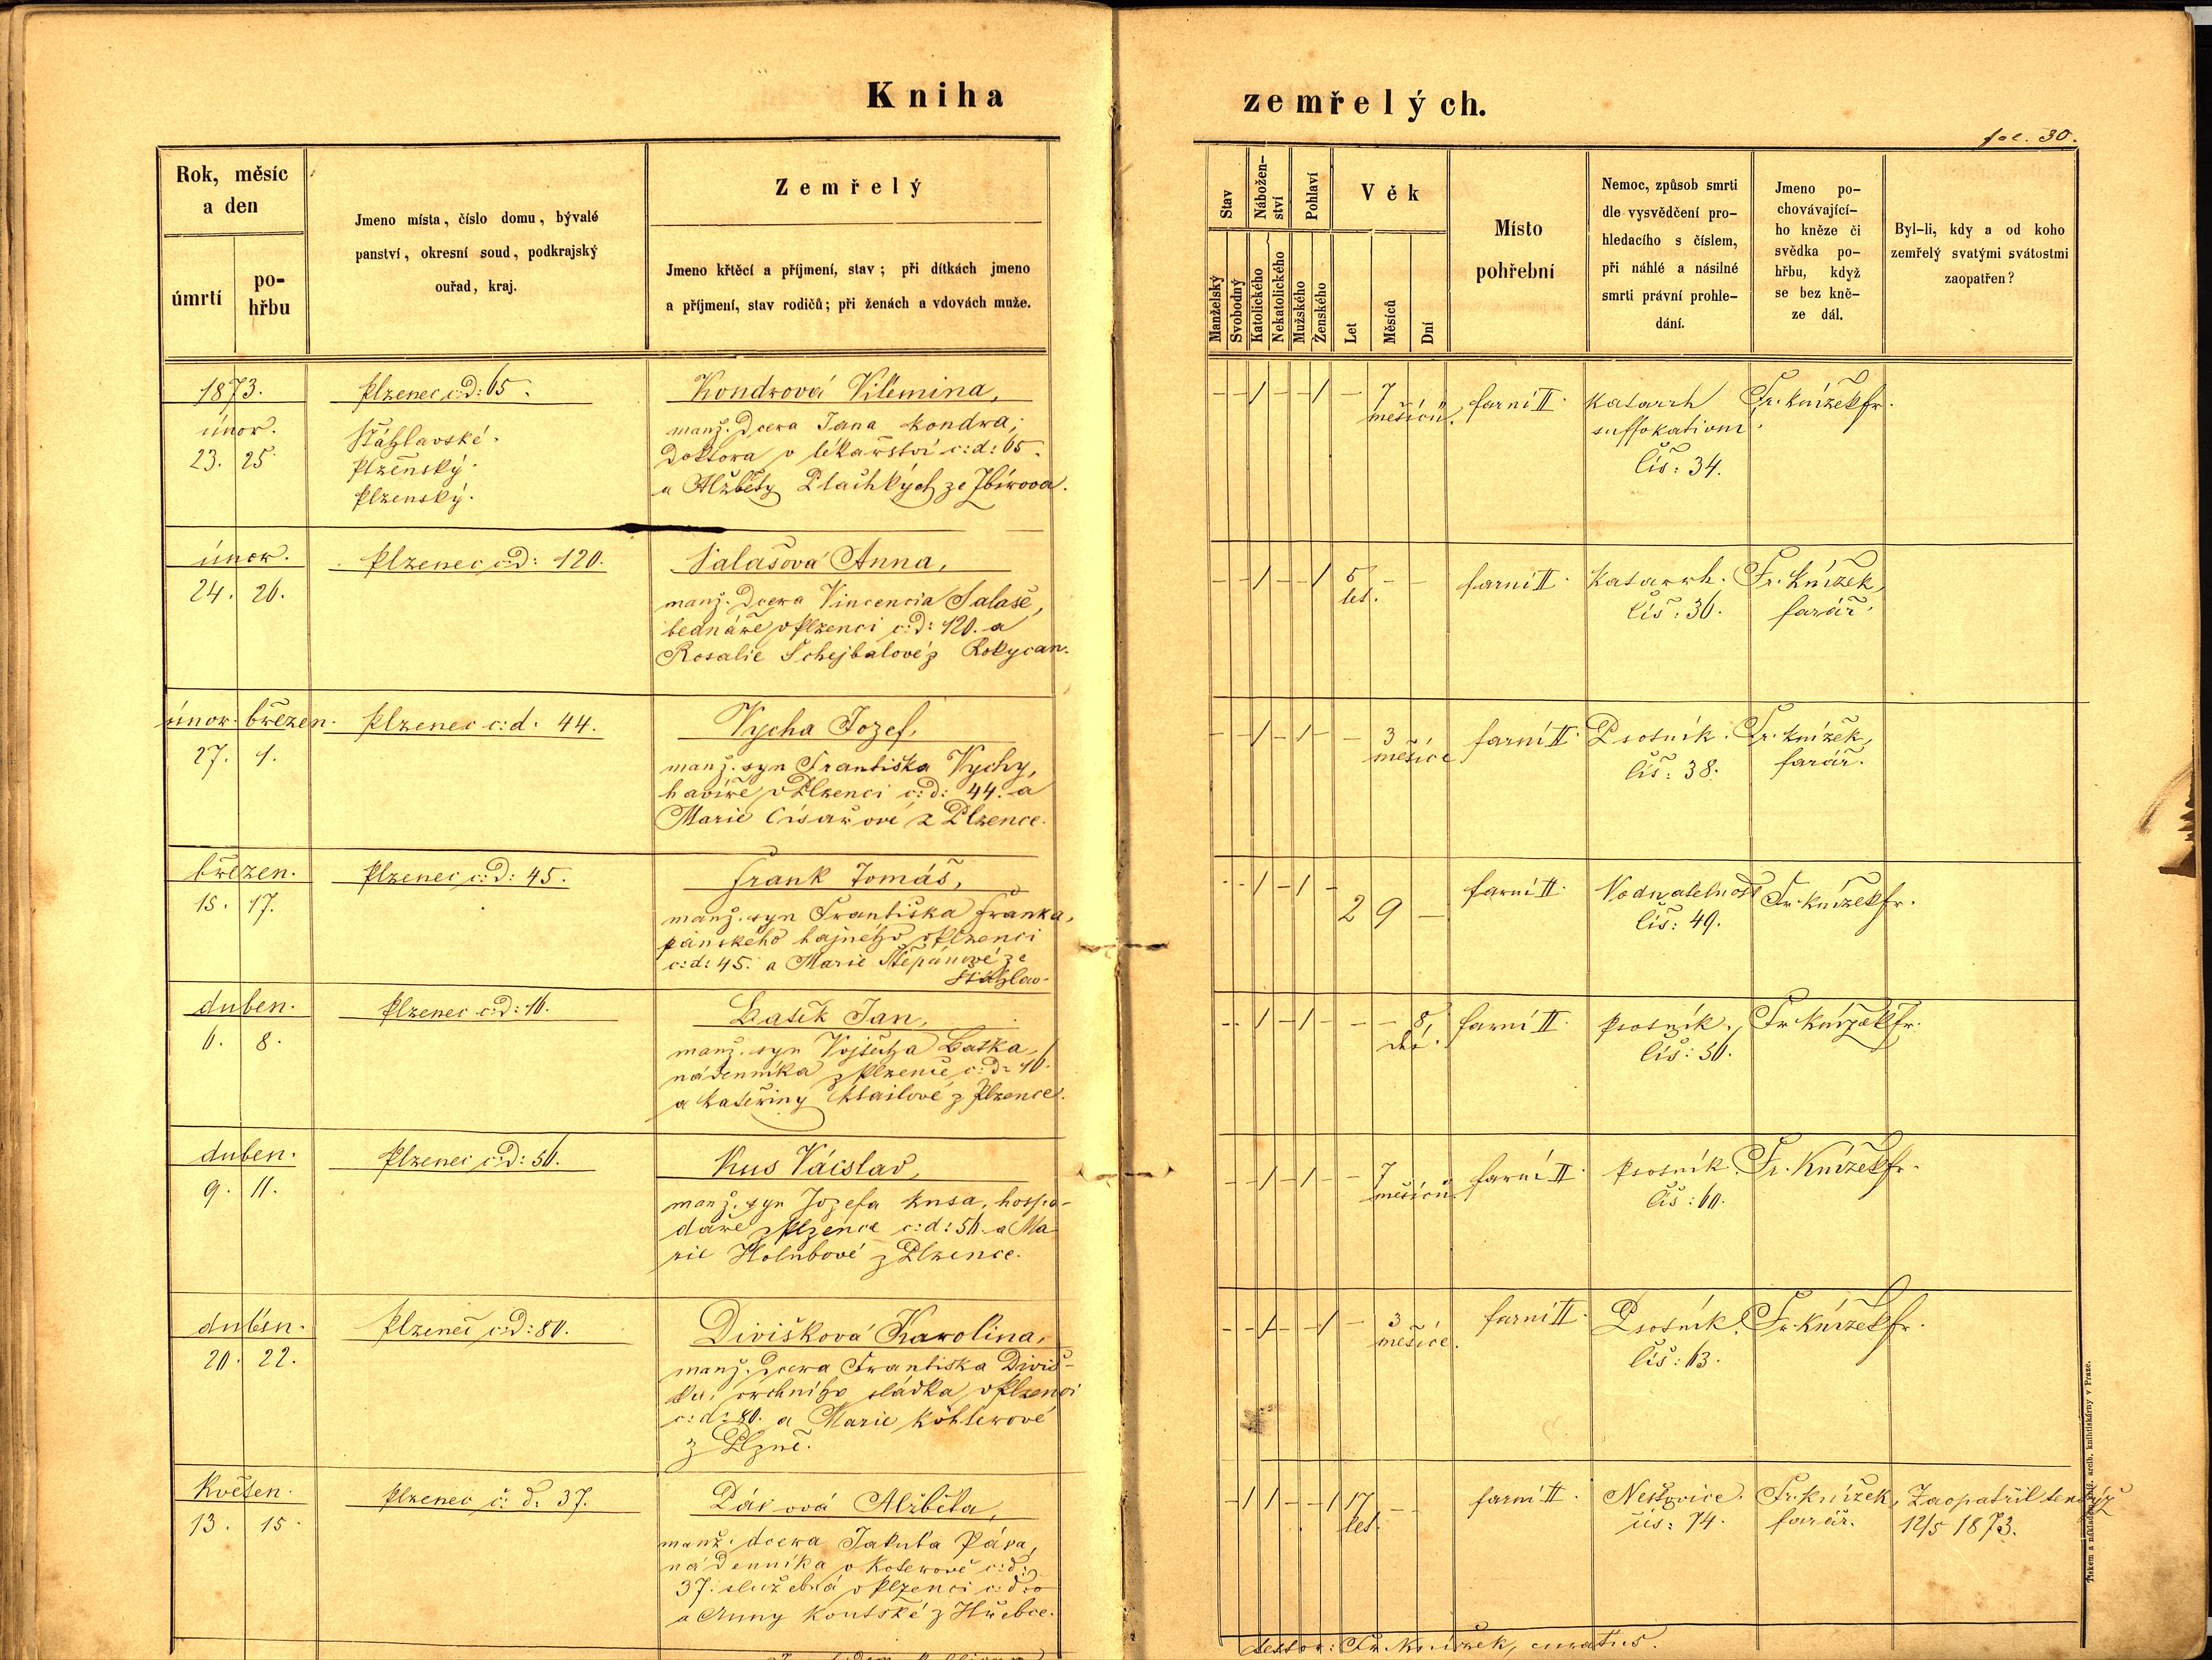 Kniha
zemřelých.
fol. 30.
Rok, měsíc
a den
úmrtí
po-
hřbu
Jmeno místa, číslo domu, bývalé
panství, okresní soud, podkrajský
ouřad, kraj.
Zemřelý
Jmeno křtěcí a příjmení, stav; při dítkách jmeno
a příjmení, stav rodičů; při ženách a vdovách muže.
Stav
Manželský
Svobodný
Nábožen-
ství
Katolického
Nekatolického
Pohlaví
Mužského
Ženského
Věk
Let
Měsíců
Dní
Místo
pohřební
Nemoc, způsob smrti
dle vysvědčení pro-
hledacího s číslem,
při náhlé a násilné
smrti právní prohle-
dání.
Jmeno po-
chovávající-
ho kněze či
svědka po-
hřbu, když
se bez kně-
ze dál.
Byl-li, kdy a od koho
zemřelý svatými svátostmi
zaopatřen?
1873.
únor.
23. 25.
Plzenec c:D: 65.
Šťáhlavské.
Plzenský.
Plzenský.
Kondrová Vilémina,
manž. Dcera Jana Kondra,
Doktora v lékařství c:d: 65.
a Alžběty ze Zbirova.
- - / - - / - 7
měsíců.
farní II.
Katarrh
suffokativní.
Čís: 34.
Fr. Knížek fr.
únor.
24. 26.
Plzenec c:D: 120.
Salašová Anna,
manž. Dcera Vincencia Salaše,
bednáře v Plzenci c:D: 120. a
Rosalie Schejbalové z Rokycan.
- - / - - / 5 - -
let.
farní II.
Katarrh.
čís: 36.
Fr. Knížek,
farář.
únor. březen.
27. 1.
Plzenec c:d: 44.
Vycha Jozef,
manž. syn Františka Vychy,
havíře v Plzenci c:D: 44. a
Marie Císařové z Plzence.
- - / - / - - 3
měsíce
farní II.
Psotník.
čís: 38.
Fr. Knížek,
farář.
březen.
15. 17.
Plzenec c:D: 45.
Frank Tomáš,
manž. syn Františka Franka,
panského hajného v Plzenci
c:d: 45. a Marie Štěpánové ze
Šťáhlav.
- - / - / - 2 9 -
farní II.
Vodnatelnost
čís: 49.
Fr. Knížek fr.
duben.
6. 8.
Plzenec c:D: 16.
Batěk Jan,
manž. syn Vojtěcha Baťka,
nádenníka z Plzence c:D: 16.
a Kateřiny z Plzence.
- - / - / - - - 8
dní.
farní II.
Psotník.
čís: 56.
Fr. Knížek fr.
duben.
9. 11.
Plzenec c:D: 56.
Kus Václav,
manž. syn Jozefa Kusa, hospo-
dáře z Plzence c:d: 56. a Ma-
rie Holubové z Plzence.
- - / - / - - 7
měsíců
farní II.
Psotník.
čís: 60.
Fr. Knížek fr.
duben.
20. 22.
Plzenec c:D: 80.
Divišková Karolina,
manž. Dcera Františka Diviš-
ka, vrchního sládka v Plzenci
c:d: 80. a Marie Köhlerové
z Plzně.
- - / - - / - 3
měsíce.
farní II.
Psotník.
čís: 63.
Fr. Knížek fr.
Květen.
13. 15.
Plzenec č: d: 37.
Pásová Alžběta,
manž. dcera Jakuba Pása,
nádenníka v Koterově c:d:
37. služebná v Plzenci c:d:
a Anny Koutské z Hřebce.
- / / - - / 17 - -
let.
farní II.
Neštovice.
čís: 74.
Fr. Knížek,
farář.
Zaopatřil tentýž
12/5 1873.
Testor: Fr. Knížek, curatus.
Tiskem a nákladem kníž. arcib. knihtiskárny v Praze.